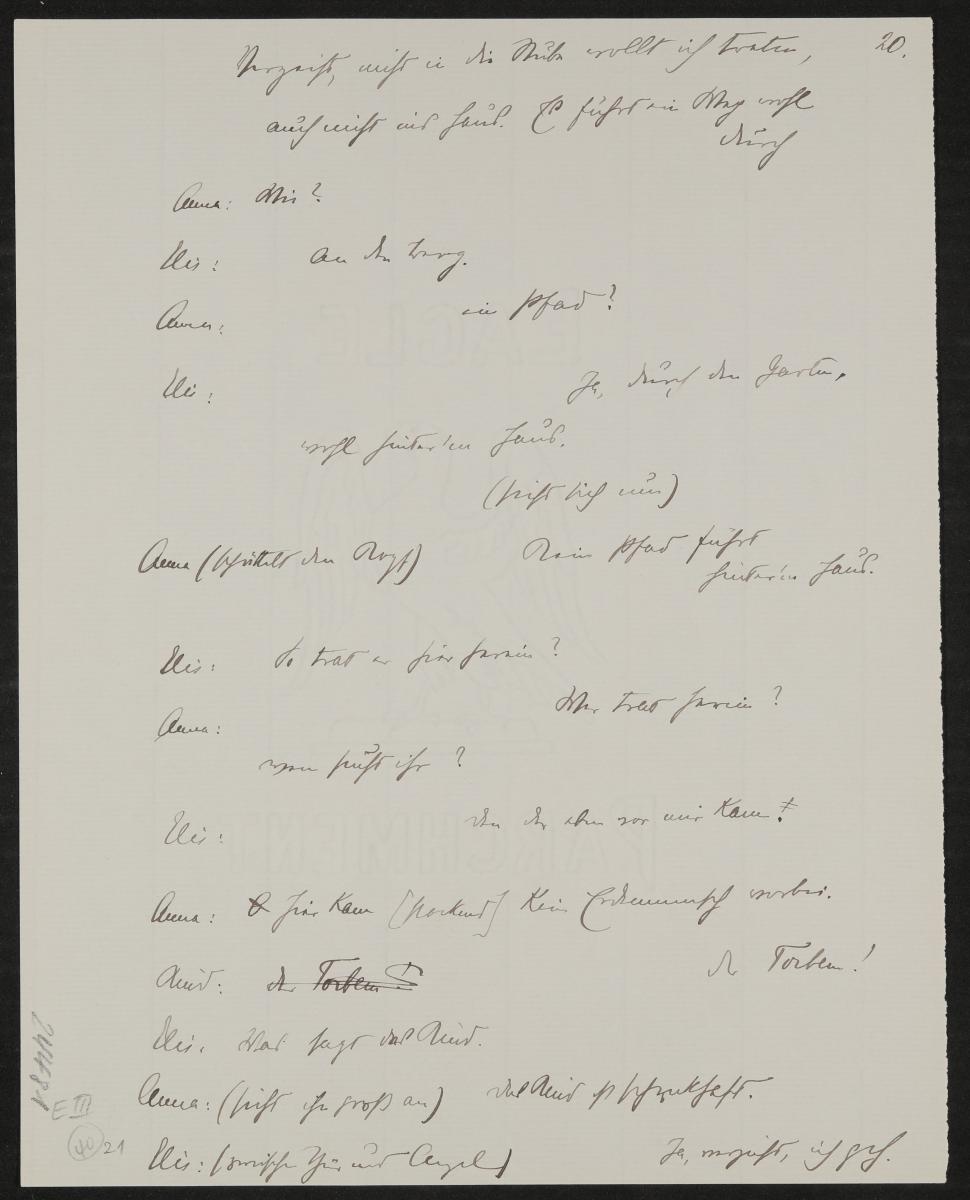 20.
Verzeiht, nicht in die Stube wollt ich treten,
auch nicht ins Haus. Es führt ein Weg wohl
durch
Anna: Wie?
Elis: an den Berg.
Anna: ein Pfad?
Elis: Ja, durch den Garten,
wohl hinter'm Haus.
(sieht sich um)
Anna (schüttelt den Kopf) Kein Pfad führt
hinter'm Haus.
Elis: So trat er hier herein?
Anna: Wer trat herein?
wen sucht ihr?
Elis: den der eben vor mir kam!
Anna: hier kam [stockend] kein Erdenmensch vorbei.
Kind: der Torbern! der Torbern!
Elis. Was sagt das Kind.
Anna: (sieht ihn groß an) das Kind ist schreckhaft.
Elis: (zwischen Thür und Angel) Ja, verzeiht, ich geh.
24481
E III
40
21
EAGLE
PARCHMENT